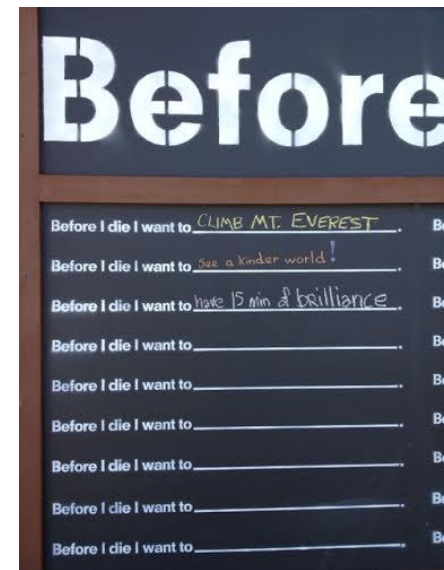 Before
Before I die I want to CLIMB MT. EVEREST.
Before I die I want to See a kinder world!.
Before I die I want to have 15 min of brilliance.
Before I die I want to .
Before I die I want to .
Before I die I want to .
Before I die I want to .
Before I die I want to .
Before I die I want to .